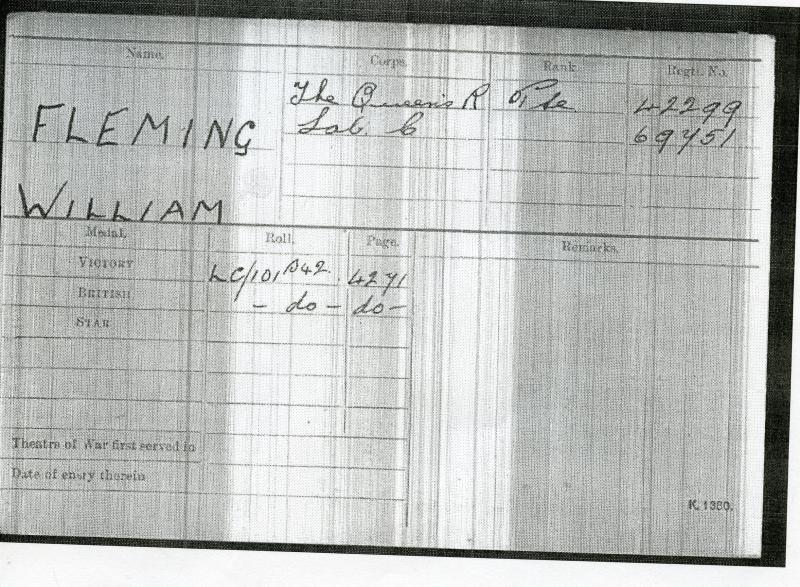 Name. Corps. Rank. Regtl. No.
The Queen's R Pte 42299
FLEMING Lab. C 69751
WILLIAM
Medal. Roll. Page. Remarks.
VICTORY LC/101 B42. 4271
BRITISH - do - do -
STAR
Theatre of War first served in
Date of entry therein
K. 1380.